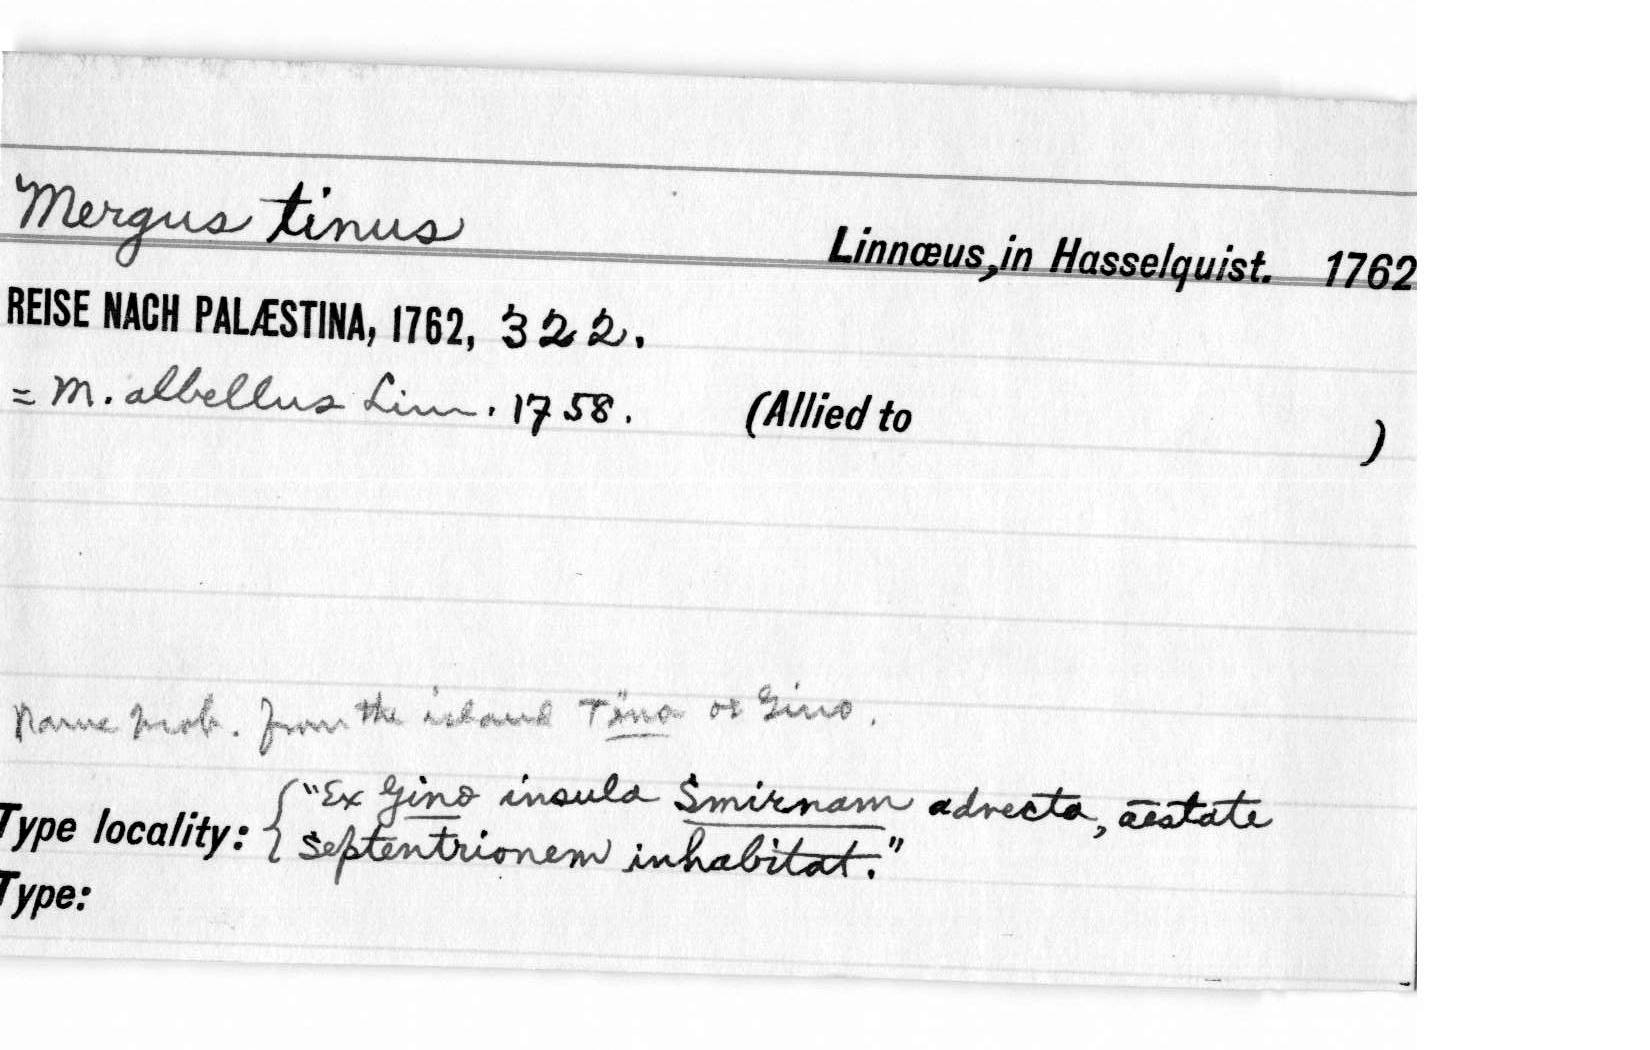 Mergus tinus
Linnæus, in Hasselquist. 1762
REISE NACH PALÆSTINA, 1762, 322.
= M. albellus Linn. 1758. (Allied to )
Name prob. from the island Tino or Gino.
Type locality: { "Ex Gino insula Smirnam advecta, aestate
septentrionem inhabitat."
Type: